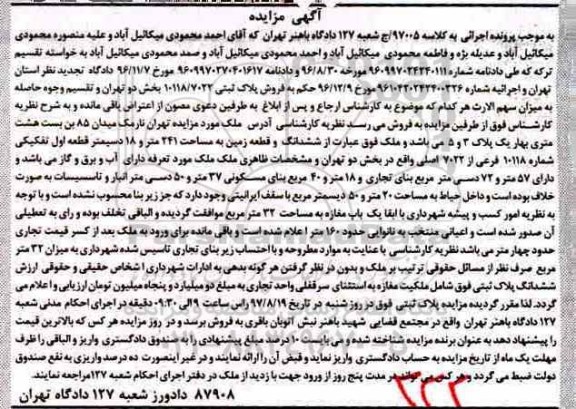 آگهی مزایده
به موجب پرونده اجرائی به کلاسه ۹۷۰۰۵/ج شعبه ۱۲۷ دادگاه باهنر تهران که آقای احمد محمودی میکائیل آباد و علیه منصوره محمودی
میکائیل آباد و عدیله بژه و فاطمه محمودی میکائیل آباد و احمد محمودی میکائیل آباد و صمد محمودی میکائیل آباد به خواسته تقسیم
ترکه که طی دادنامه شماره ۹۶۰۹۹۷۰۲۴۲۴۰۰۱۱۱ مورخه ۹۶/۸/۳۰ و دادنامه ۹۶۰۹۹۷۰۲۷۰۴۰۱۶۱۷ مورخ ۹۶/۱۱/۷ دادگاه تجدید نظر استان
تهران و اجرائیه شماره ۹۶۱۰۴۲۰۲۴۲۴۰۰۳۲۶ مورخ ۹۶/۱۲/۹ حکم به فروش پلاک ثبتی ۱۰۱۱۸/۷۰۲۲ بخش دو تهران و تقسیم وجوه حاصله
به میزان سهم الارث هر کدام که موضوع به کارشناس ارجاع و پس از ابلاغ به طرفین دعوی مصون از اعتراض باقی مانده و به شرح نظریه
کارشناس فوق از طرفین مزایده به فروش می رسد نظریه کارشناسی آدرس ملک مورد مزایده تهران نارمک میدان ۸۵ بن بست هشت
متری بهار یک پلاک ۳ و ۵ می باشد و ملک فوق عبارت از ششدانگ و قطعه زمین به مساحت ۲۴۱ متر و ۱۸ دسیمتر قطعه اول تفکیکی
شماره ۱۰۱۱۸ فرعی از ۷۰۲۲ اصلی واقع در بخش دو تهران و مشخصات ظاهری ملک ملک مورد تعرفه دارای آب و برق و گاز می باشد و
دارای ۵۷ متر و ۷۲ دسی متر مربع بنای تجاری و ۱۸ متر و ۴۰ مربع بنای مسکونی ۳۷ متر و ۵۰ دسی متر انبار و تاسیسات به صورت
خلاف بوده است و داخل حیاط به مساحت ۲۰ متر و ۵۰ دیسمتر مربع با سقف ایرانیتی وجود دارد که جز زیر بنا محسوب نشده است و با توجه
به نظریه امور کسب و پیشه شهرداری با ابقا یک باب مغازه به مساحت ۳۲ متر مربع موافقت گردیده و الباقی تخلف بوده و رای به تعطیلی
آن صدور شده است و اعیانی منتخب به نانوایی حدود ۱۶۰ متر ا علام شده است و باقی مانده برای ورود به ملک بعد از کسر قیمت تجاری
حدود چهار متر می باشد نظریه کارشناسی با عنایت به موارد مطروحه و با احتساب زیر بنای تجاری تاسیس شده شهرداری به میزان ۳۲ متر
مربع صرف نظر از مسائل حقوقی ترتیب بر ملک و بدون در نظر گرفتن هر گونه بدهی به ادارات شهرداری اشخاص حقیقی و حقوقی ارزش
ششدانگ پلاک ثبتی فوق شامل ملکیت مغازه به استثنای سرقفلی واحد تجاری به مبلغ دو میلیارد و پنجاه میلیون تومان ارزیابی و اعلام می
گردد. لذا مقرر گردیده مزایده پلاک ثبتی فوق در روز شنبه در تاریخ ۹۷/۸/۱۹ راس ساعت ۹ الی ۰۹:۳۰ دقیقه در اجرای احکام مدنی شعبه
۱۲۷ دادگاه باهنر تهران واقع در مجتمع قضایی شهید باهنر نبش اتوبان باقری به فروش برسد و در روز مزایده هر کس که بالاترین قیمت
را پیشنهاد دهد به عنوان برنده مزایده شناخته شد وا می بایست ۱۰ درصد مبلغ پیشنهادی را به صندوق دادگستری واریز و الباقی را ظرف
مهلت یک ماه از تاریخ مزایده به حساب دادگستری واریز نماید و قبض آن را ارائه نمایند و در غیر اینصورت ده درصد واریزی به نفع صندوق
دولت ضبط می گردد و هر کس می تواند در مدت پنج روز از ورود جهت بازدید از ملک در دفتر اجرای احکام شعبه ۱۲۷ مراجعه نمایند.
۸۷۹۰۸ دادورز شعبه ۱۲۷ دادگاه تهران